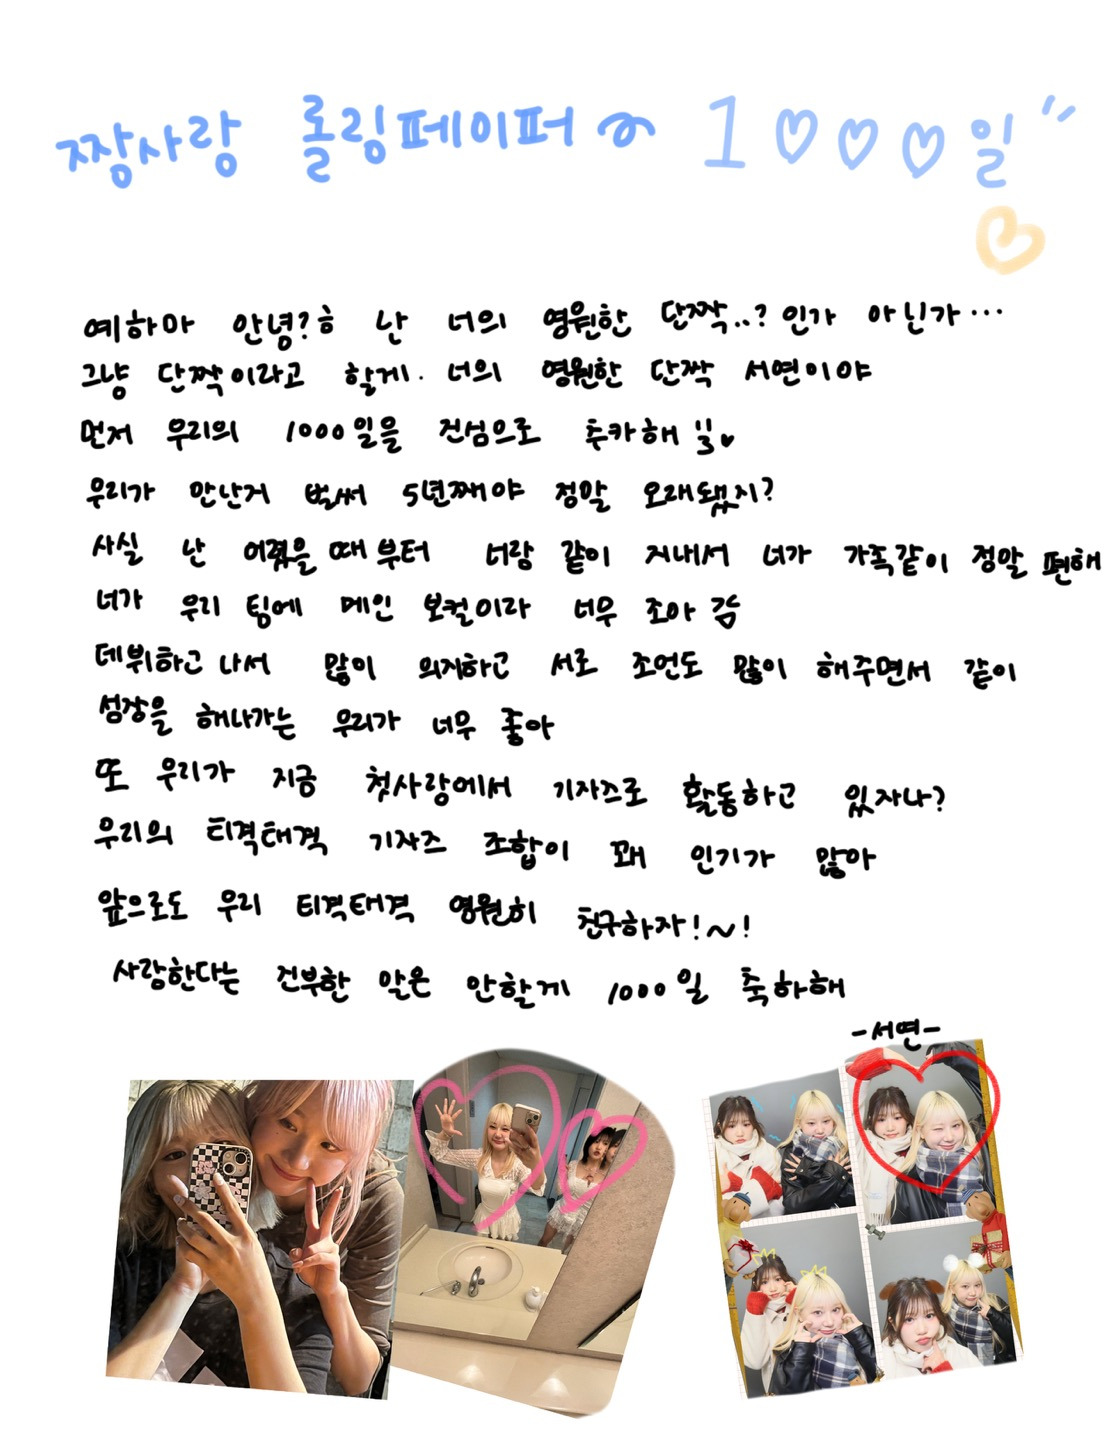 짱사랑 롤링페이퍼 1000일"
예하마 안녕?ㅎ 난 너의 영원한 단짝..? 인가 아닌가...
그냥 단짝이라고 할게. 너의 영원한 단짝 서연이야
먼저 우리의 1000일을 진심으로 추카해
우리가 만난지 벌써 5년째야 정말 오래됐지?
사실 난 어렸을때부터 너랑 같이 지내서 너가 가족같이 정말 편해
너가 우리 팀에 메인 보컬이라 너무 조아
데뷔하고 나서 많이 의지하고 서로 조언도 많이 해주면서 같이
성장을 해나가는 우리가 너무 좋아
또 우리가 지금 첫사랑에서 기자즈로 활동하고 있자나?
우리의 티격태격 기자즈 조합이 꽤 인기가 많아
앞으로도 우리 티격태격 영원히 친구하자!~!
사랑한다는 진부한 말은 안할게 1000일 축하해
-서연-